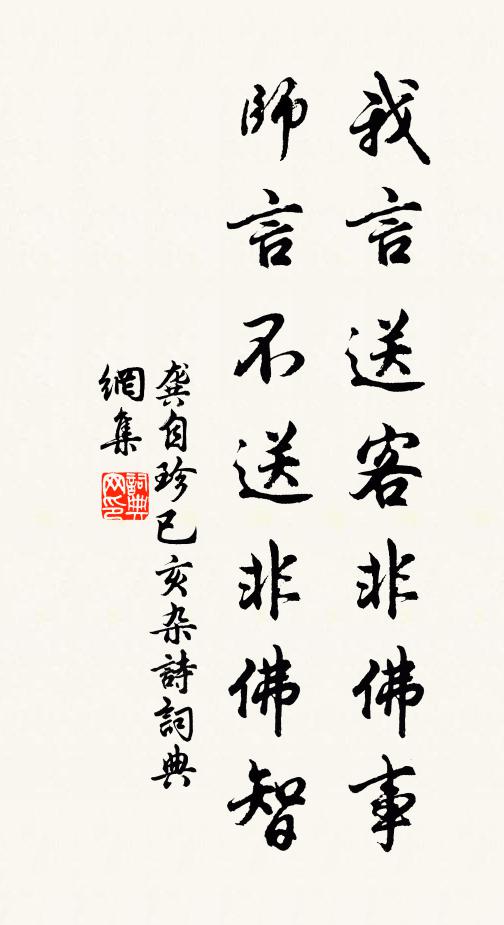 我言送客非佛事
師言不送非佛智
龔自珍已亥杂詩詞典
網集
詞典
网印